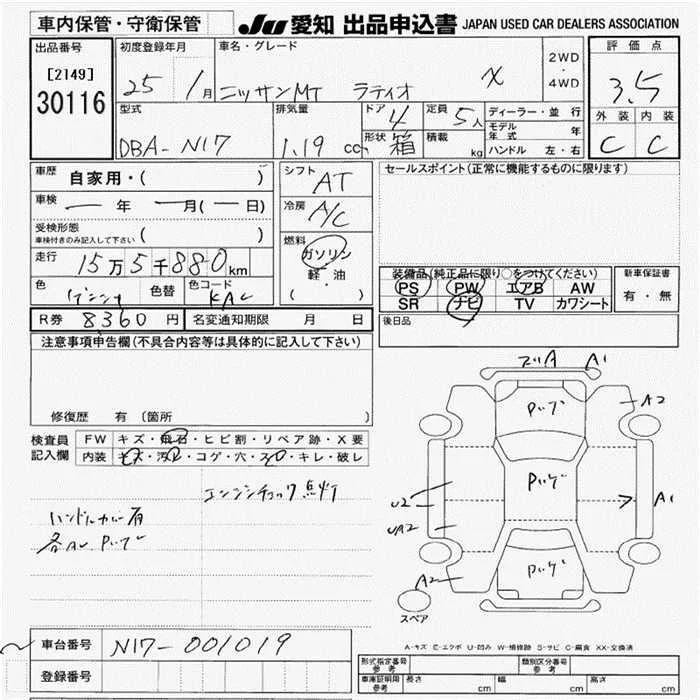 車内保管・守衛保管 JU 愛知 出品申込書 JAPAN USED CAR DEALERS ASSOCIATION
出品番号 初度登録年月 車名・グレード 2WD・4WD 評価点
[2149]
30116
25 1月 ニッサンMT ラティオ X 3.5
型式 排気量 ドア 4 定員 5人 ディーラー・並行 外装 内装
モデル年式 年
DBA-N17 1.19 cc 形状 箱 積載 kg ハンドル 左・右 C C
車歴 自家用・( ) シフト AT セールスポイント(正常に機能するものに限ります)
車検 ― 年 ― 月(― 日) 冷房 A/C
受検形態
車検付きのみ記入して下さい ( )
走行 15万5千880km 燃料 ガソリン
軽・油
( )
装備品(純正品に限り○をつけてください) 新車保証書
色 色替 色コード KAC PS PW エアB AW 有・無
SR ナビ TV カワシート
R券 8360円 名変通知期限 月 日 後日品
注意事項申告欄(不具合内容等は具体的に記入して下さい)
修復歴 有(箇所 )
検査員 FW キズ・飛石・ヒビ割・リペア跡・X要
記入欄 内装 キズ・汚れ・コゲ・穴・スレ・キレ・破レ
エンジンチェック点灯
ハンドルカバー有
A1
A2
A1
U2
UA2
A2
スペア
A-キズ E-エクボ U-凹み W-補修跡 S-サビ C-腐食 XX-交換済
車台番号 N17-001019
登録番号
型式指定番号 参考 類別区分番号 参考
車庫証明用 参考 長さ cm 幅 cm 高さ cm